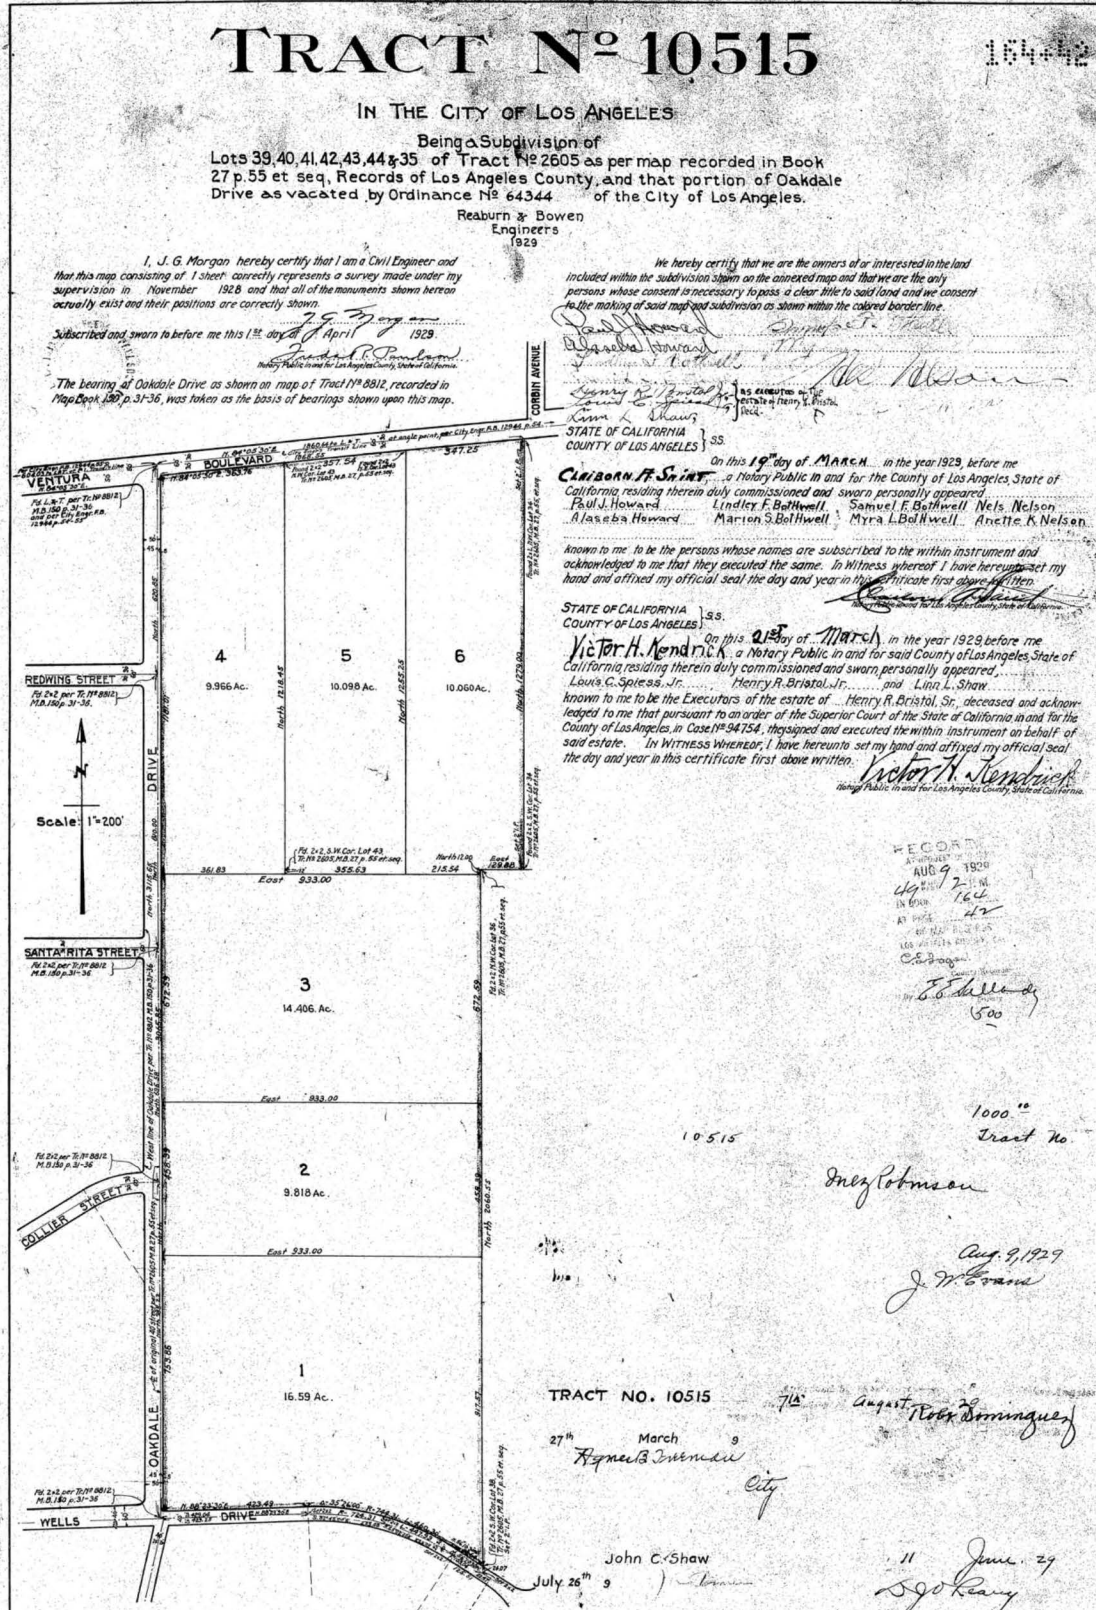 TRACT Nº 10515
164-42
IN THE CITY OF LOS ANGELES
Being a Subdivision of
Lots 39,40,41,42,43,44 & 35 of Tract Nº 2605 as per map recorded in Book
27 p.55 et seq, Records of Los Angeles County, and that portion of Oakdale
Drive as vacated by Ordinance Nº 64344 of the City of Los Angeles.
Reaburn & Bowen
Engineers
1929
I, J. G. Morgan hereby certify that I am a Civil Engineer and
that this map consisting of 1 sheet correctly represents a survey made under my
supervision in November 1928 and that all of the monuments shown hereon
actually exist and their positions are correctly shown.
J. G. Morgan
Subscribed and sworn to before me this 1st day of April 1929.
Notary Public in and for Los Angeles County, State of California.
The bearing of Oakdale Drive as shown on map of Tract Nº 8812, recorded in
Map Book 150 p. 31-36, was taken as the basis of bearings shown upon this map.
We hereby certify that we are the owners of or interested in the land
included within the subdivision shown on the annexed map and that we are the only
persons whose consent is necessary to pass a clear title to said land and we consent
to the making of said map and subdivision as shown within the colored border line.
Paul J Howard
Alaseba Howard
Nels Nelson
Henry R. Bristol Jr.
Linn L. Shaw
as executors of the
estate of Henry R. Bristol
Decd.
STATE OF CALIFORNIA
COUNTY OF LOS ANGELES } SS.
On this 19th day of MARCH in the year 1929, before me
CLAIBORN A. SAINT, a Notary Public in and for the County of Los Angeles, State of
California, residing therein duly commissioned and sworn personally appeared
Paul J. Howard Lindley F. Bothwell Samuel F. Bothwell Nels Nelson
Alaseba Howard Marion S. Bothwell Myra L. Bothwell Anette K. Nelson
known to me to be the persons whose names are subscribed to the within instrument and
acknowledged to me that they executed the same. In Witness whereof I have hereunto set my
hand and affixed my official seal the day and year in this certificate first above written.
Notary Public in and for Los Angeles County, State of California.
STATE OF CALIFORNIA
COUNTY OF LOS ANGELES } SS.
On this 21st day of March in the year 1929, before me
Victor H. Kendrick a Notary Public in and for said County of Los Angeles, State of
California, residing therein duly commissioned and sworn personally appeared,
Louis C. Spiess, Jr. Henry R. Bristol, Jr. and Linn L. Shaw
known to me to be the Executors of the estate of Henry R. Bristol, Sr., deceased and acknow-
ledged to me that pursuant to an order of the Superior Court of the State of California in and for the
County of Los Angeles, in Case Nº 94754, they signed and executed the within instrument on behalf of
said estate. IN WITNESS WHEREOF, I have hereunto set my hand and affixed my official seal
the day and year in this certificate first above written.
Victor H. Kendrick
Notary Public in and for Los Angeles County, State of California.
CORBIN AVENUE
VENTURA BOULEVARD
347.25
REDWING STREET
Fd. 2x2 per Tr. Nº 8812
M.B. 150 p. 31-36.
4
9.966 Ac.
5
10.098 Ac.
6
10.060 Ac.
North 1218.45
North 1255.25
North 1279.00
N
Scale 1"=200'
DRIVE
Fd. 2x2, S.W. Cor. Lot 43,
Tr. Nº 2605, M.B. 27, p. 55 et seq.
361.83
355.63
East 933.00
North 12.00
215.54
East
129.88
SANTA RITA STREET
Fd. 2x2 per Tr. Nº 8812
M.B. 150 p. 31-36
3
14.406 Ac.
672.59
672.59
East 933.00
Fd. 2x2 per Tr. Nº 8812
M.B. 150 p. 31-36
COLLIER STREET
2
9.818 Ac.
458.39
North 2060.55
East 933.00
1
16.59 Ac.
753.86
917.57
OAKDALE
Fd. 2x2 per Tr. Nº 8812
M.B. 150 p. 31-36
WELLS DRIVE
423.49
RECORDED
AUG 9 1929
49 MIN. 2 P.M.
IN BOOK 164
AT PAGE 42
1000.00
Tract No.
10515
Inez Robinson
Aug. 9, 1929
J. W. Evans
TRACT NO. 10515
7th August 29
Robt Dominguez
27th March 9
City
John C. Shaw
July 26th 9
11 June 29